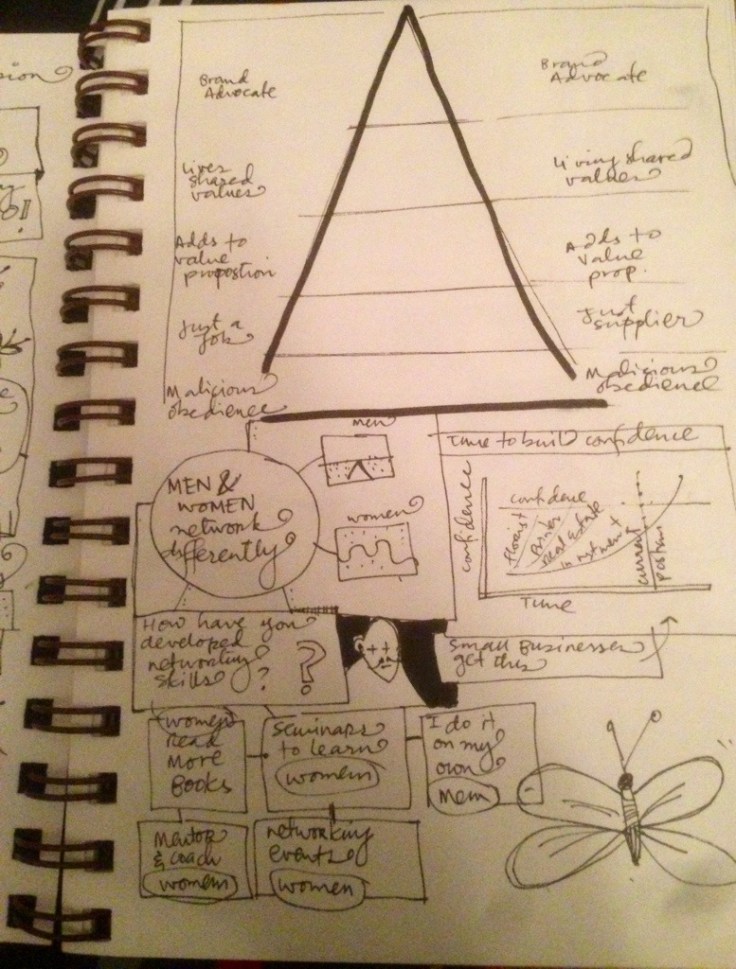 Brand
Advocate
Lives
shared
values
Adds to
value
propostion
Just a
job
Malicious
obedience
Brand
Advocate
Living shared
values
Adds to
value
prop.
Just
supplier
Malicious
obedience
MEN &
WOMEN
network
differently
men
women
Time to build confidence
confidence
confidence
florist
printer
real estate
investment
current
position
Time
How have you
developed
networking
skills?
?
Small Businesses
get this
women
Read
More
Books
Seminars
to learn
women
I do it
on my
own
Men
Mentor
& coach
women
networking
events
women